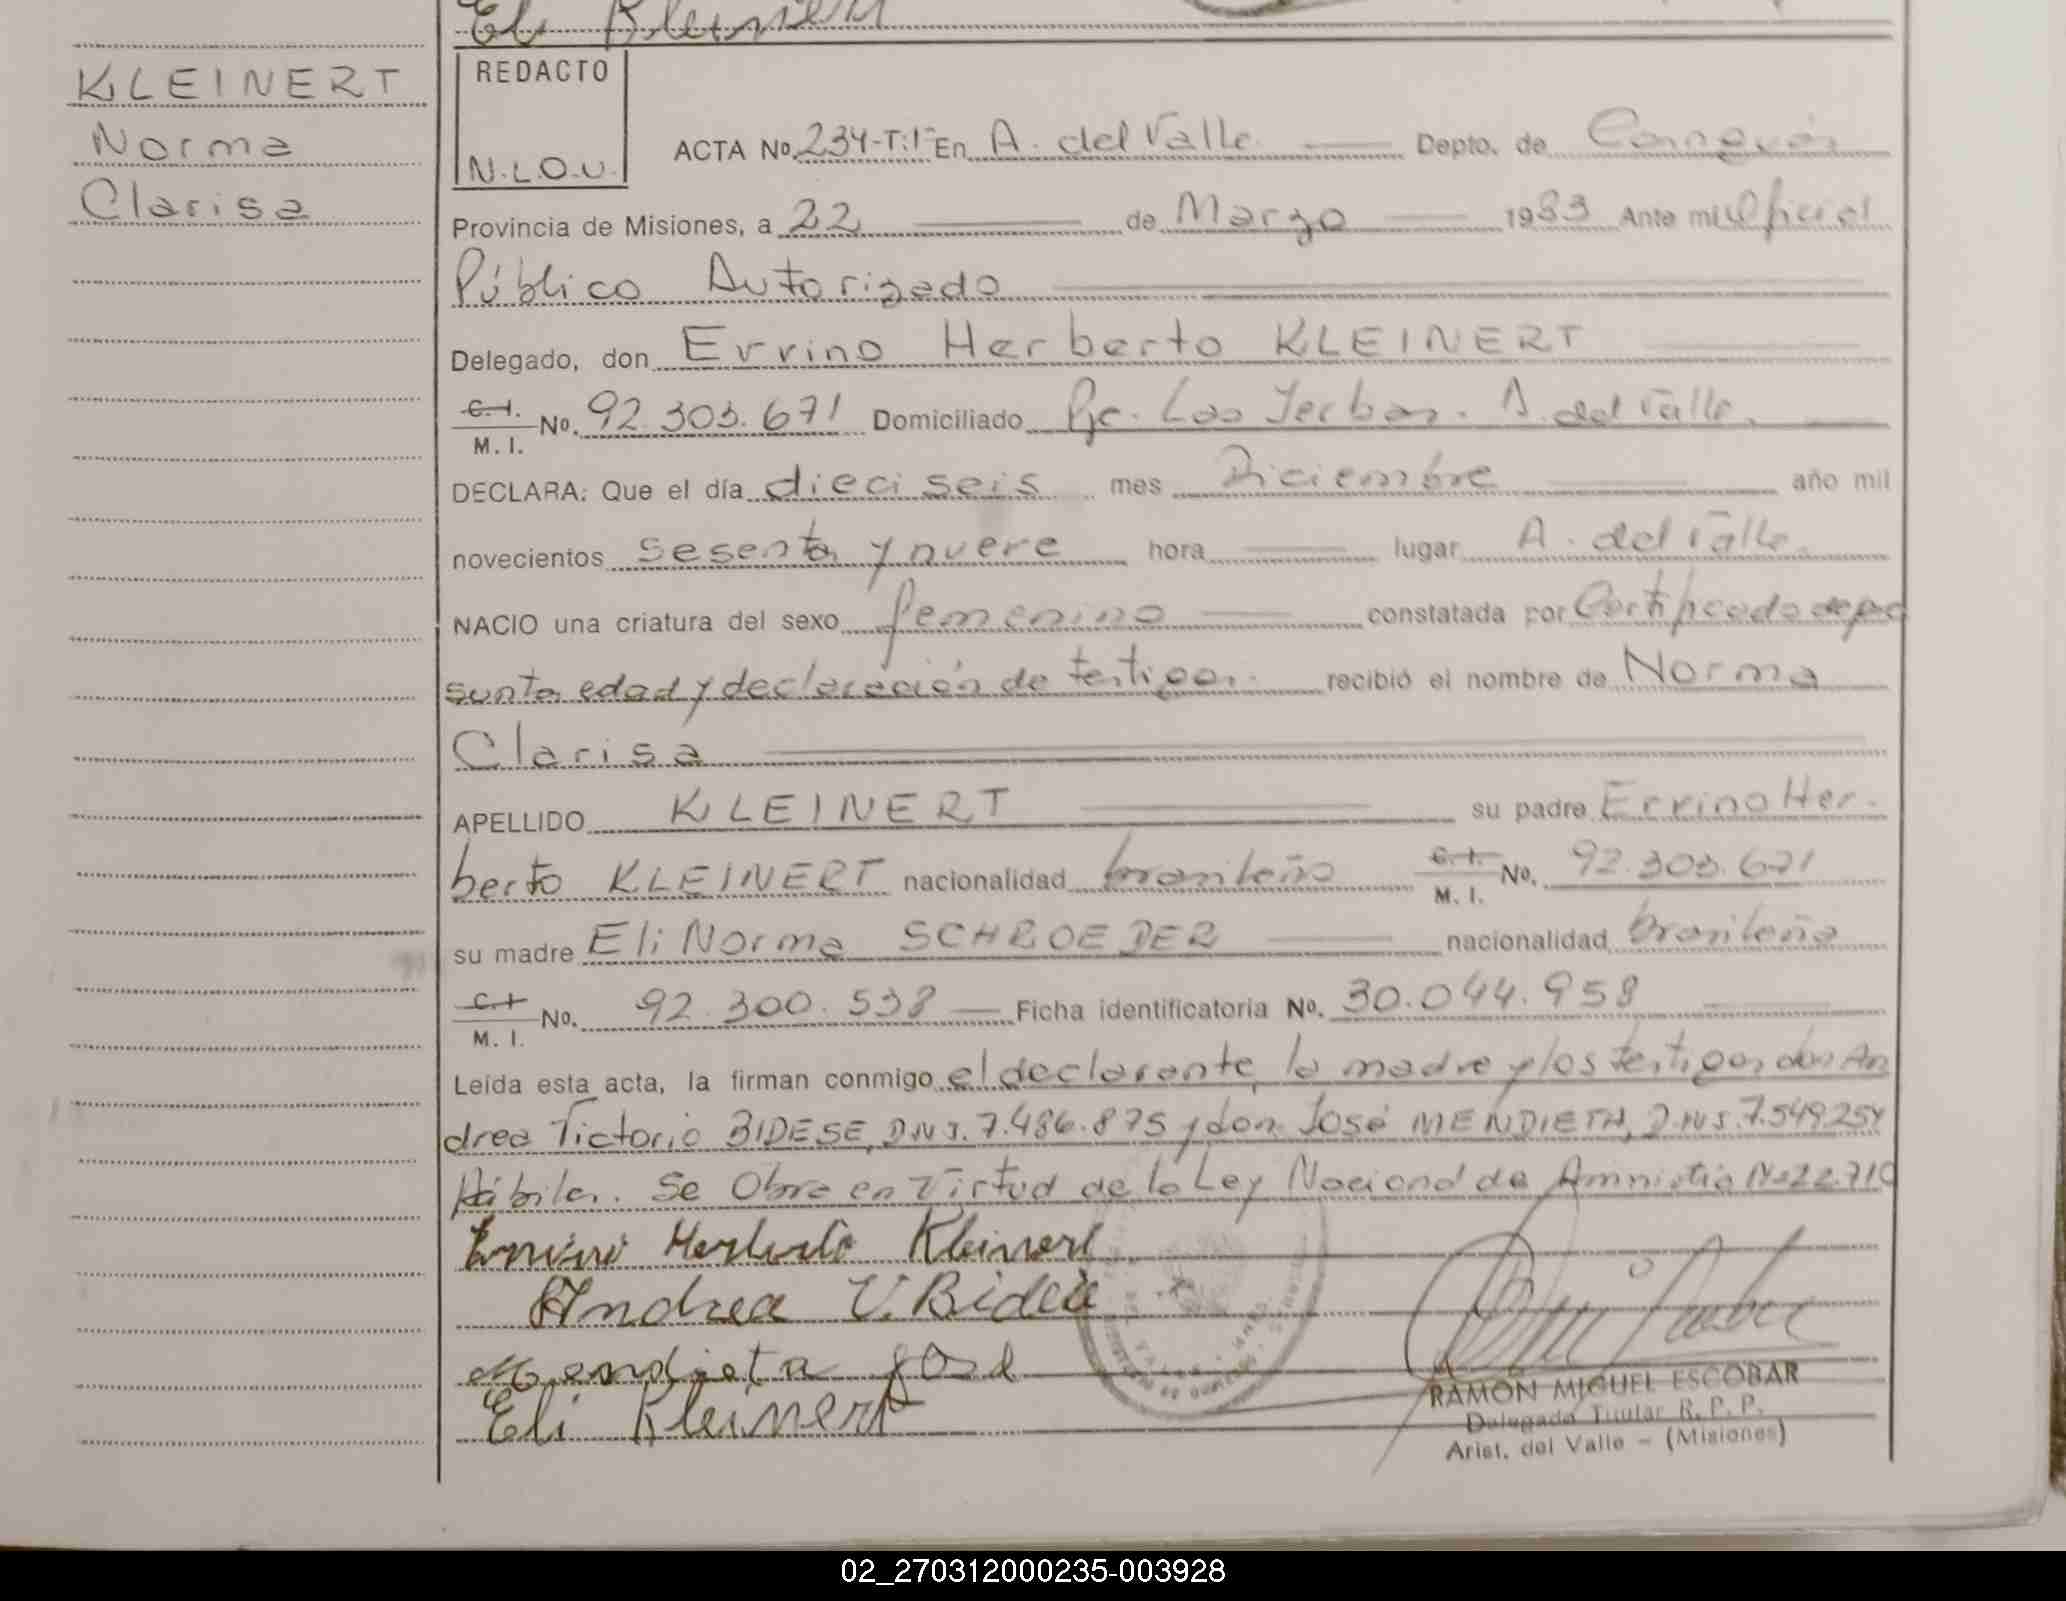 Eli Kleinert
KLEINERT
Norma
Clarisa
REDACTO
N.L.O.U.
ACTA No. 234-T:1º En A. del Valle Depto. de Cainguás
Provincia de Misiones, a 22 de Marzo 1983 Ante mi Oficial
Público Autorizado
Delegado, don Ervino Herberto KLEINERT
C. I. / M. I. No. 92.303.671 Domiciliado Pje. Las Yerbas. A. del Valle.
DECLARA: Que el día dieciseis mes Diciembre año mil
novecientos sesenta y nueve hora lugar A. del Valle.
NACIO una criatura del sexo femenino constatada por Certificado de pre
sunta edad y declaración de testigos. recibió el nombre de Norma
Clarisa
APELLIDO KLEINERT su padre Ervino Her.
berto KLEINERT nacionalidad brasileño C. I. / M. I. No. 92.303.671
su madre Eli Norma SCHROEDER nacionalidad brasileña
C. I. / M. I. No. 92.300.538 Ficha identificatoria No. 30.044.958
Leída esta acta, la firman conmigo el declarante, la madre y los testigos don An
drea Victorio BIDESE, D.N.I. 7.486.875 y don José MENDIETA, D.N.I. 7.549.254
Hábiles. Se Obra en Virtud de la Ley Nacional de Amnistia Nº 22.710
Ervino Herberto Kleinert
Andrea V. Bidese
Mendieta José
Eli Kleinert
RAMÓN MIGUEL ESCOBAR
Delegado Titular R. P. P.
Arist. del Valle - (Misiones)
02_270312000235-003928